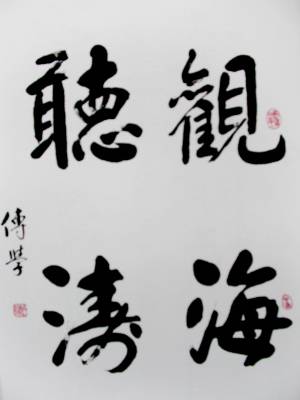 觀海
聽濤
傅學